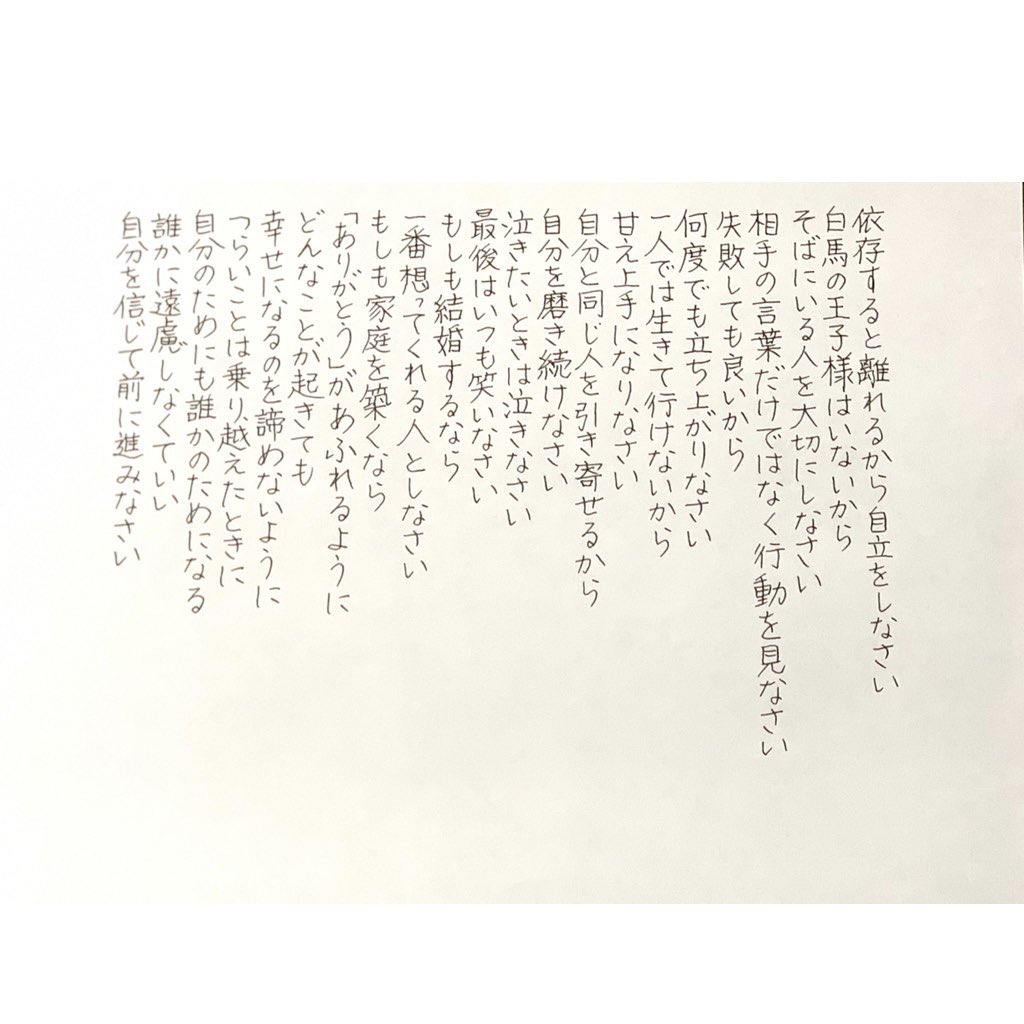 依存すると離れるから自立をしなさい
白馬の王子様はいないから
そばにいる人を大切にしなさい
相手の言葉だけではなく行動を見なさい
失敗しても良いから
何度でも立ち上がりなさい
一人では生きて行けないから
甘え上手になりなさい
自分と同じ人を引き寄せるから
自分を磨き続けなさい
泣きたいときは泣きなさい
最後はいつも笑いなさい
もしも結婚するなら
一番想ってくれる人としなさい
もしも家庭を築くなら
「ありがとう」があふれるように
どんなことが起きても
幸せになるのを諦めないように
つらいことは乗り越えたときに
自分のためにも誰かのためになる
誰かに遠慮しなくていい
自分を信じて前に進みなさい